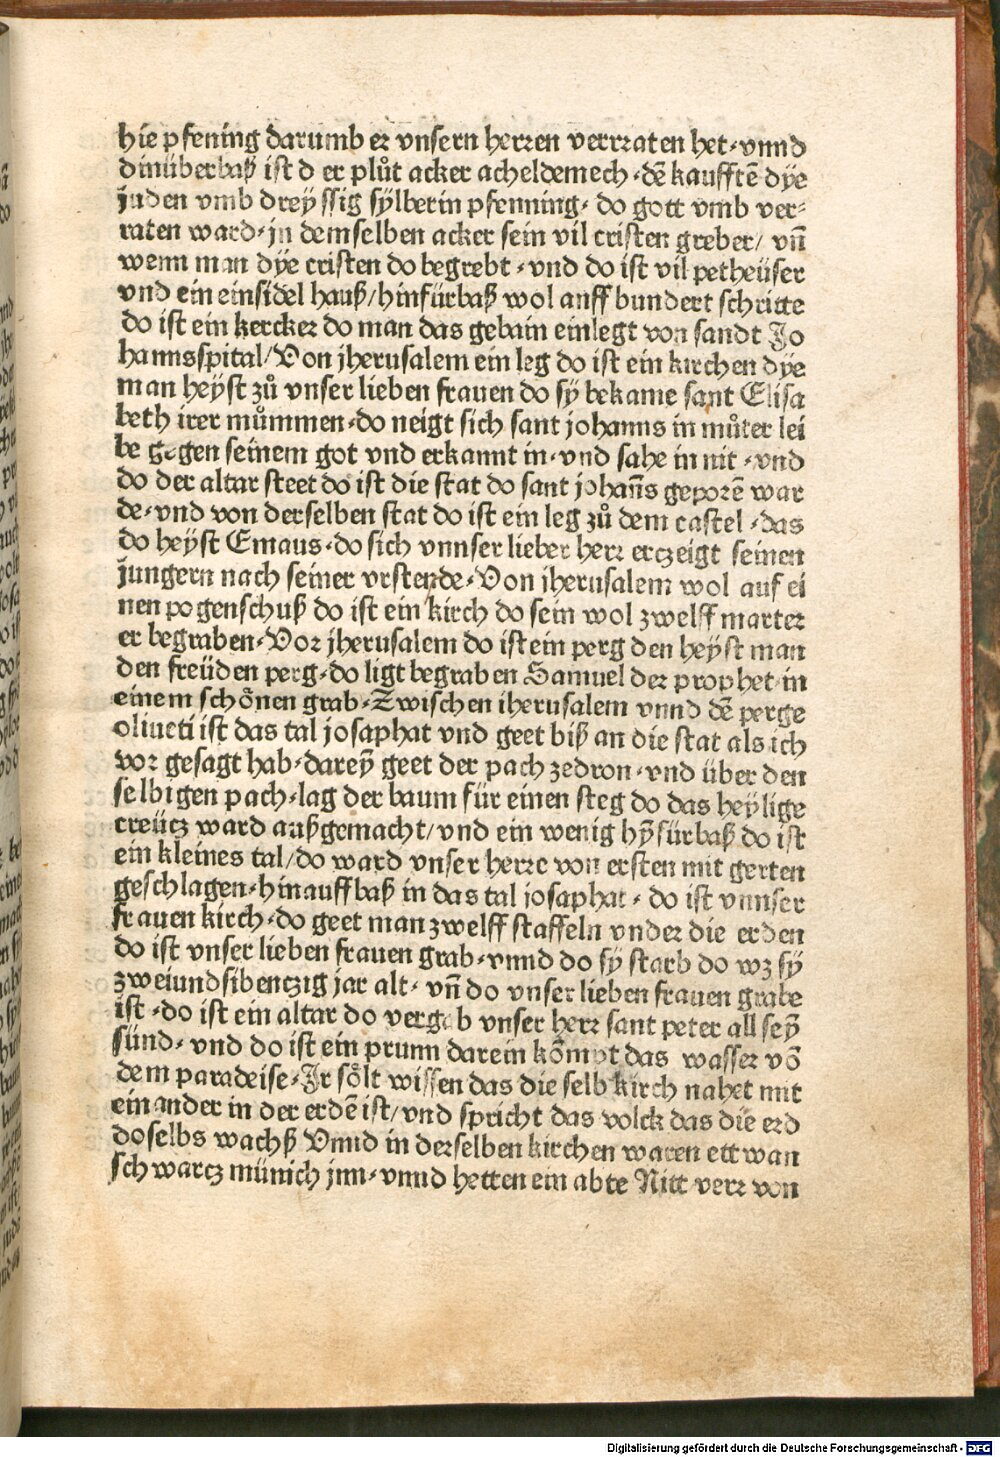 hie pfening darumb er vnsern herren verrraten het⸗vnnd
dinüberbaß ist d er plůt acker acheldemech⸗dē kaufftē dÿe
juden vmb dreyssig sÿlberin pfenning⸗ do gott vmb ver⸗
raten ward⸗jn demselben acker sein vil cristen greber/ vn̄
wenn man dÿe cristen do begrebt⸗vnd do ist vil petheüser
vnd ein einsidel hauß/hinfürbaß wol auff bundert schritte
do ist ein kercker do man das gebain einlegt von sandt Jo
hannsspital/Von jherusalem ein leg do ist ein kirchen dÿe
man heÿst zů vnser lieben frauen do sÿ bekame sant Elisa
beth irer můmmen⸗do neigt sich sant johanns in můter lei
be gegen seinem got vnd erkannt in⸗vnd sahe in nit⸗vnd
do der altar steet do ist die stat do sant johan̄s geporē war
de⸗vnd von derselben stat do ist ein leg zů dem castel⸗das
do heÿst Emaus⸗do sich vnnser lieber herr erczeigt seinen
jungern nach seiner vrstende⸗Von jherusalem wol auf ei
nen pogenschuß do ist ein kirch do sein wol zwelff marter
er begraben⸗Vor jherusalem do ist ein perg den heÿst man
den freüden perg⸗do ligt begraben Samuel der prophet in
einem schönen grab⸗Zwischen iherusalem vnnd dē perge
oliueti ist das tal josaphat vnd geet biß an die stat als ich
vor gesagt hab⸗dareÿ geet der pach zedron⸗vnd über den
selbigen pach⸗lag der baum für einen steg do das heÿlige
creücz ward außgemacht/vnd ein wenig hÿfürbaß do ist
ein kleines tal/do ward vnser herre von ersten mit gerten
geschlagen⸗hinauffbaß in das tal josaphat⸗ do ist vnnser
frauen kirch⸗do geet man zwelff staffeln vnder die erden
do ist vnser lieben frauen grab⸗vnnd do sÿ starb do wz sÿ
zweiundsibenczig jar alt⸗ vn̄ do vnser lieben frauen grabe
ist⸗do ist ein altar do vergab vnser herr sant peter all seÿ
sünd⸗ vnd do ist ein prunn darein kömpt das wasser vō
dem paradeise⸗Jr sölt wissen das die selb kirch nahet mit
einander in der erdē ist/vnd spricht das volck das die erd
doselbs wachß Vnnd in derselben kirchen waren ettwan
schwarcz münich jnn⸗vnnd hetten ein abte Nitt verr von
Digitalisierung gefördert durch die Deutsche Forschungsgemeinschaft - DFG